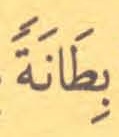 بِطَانَةً